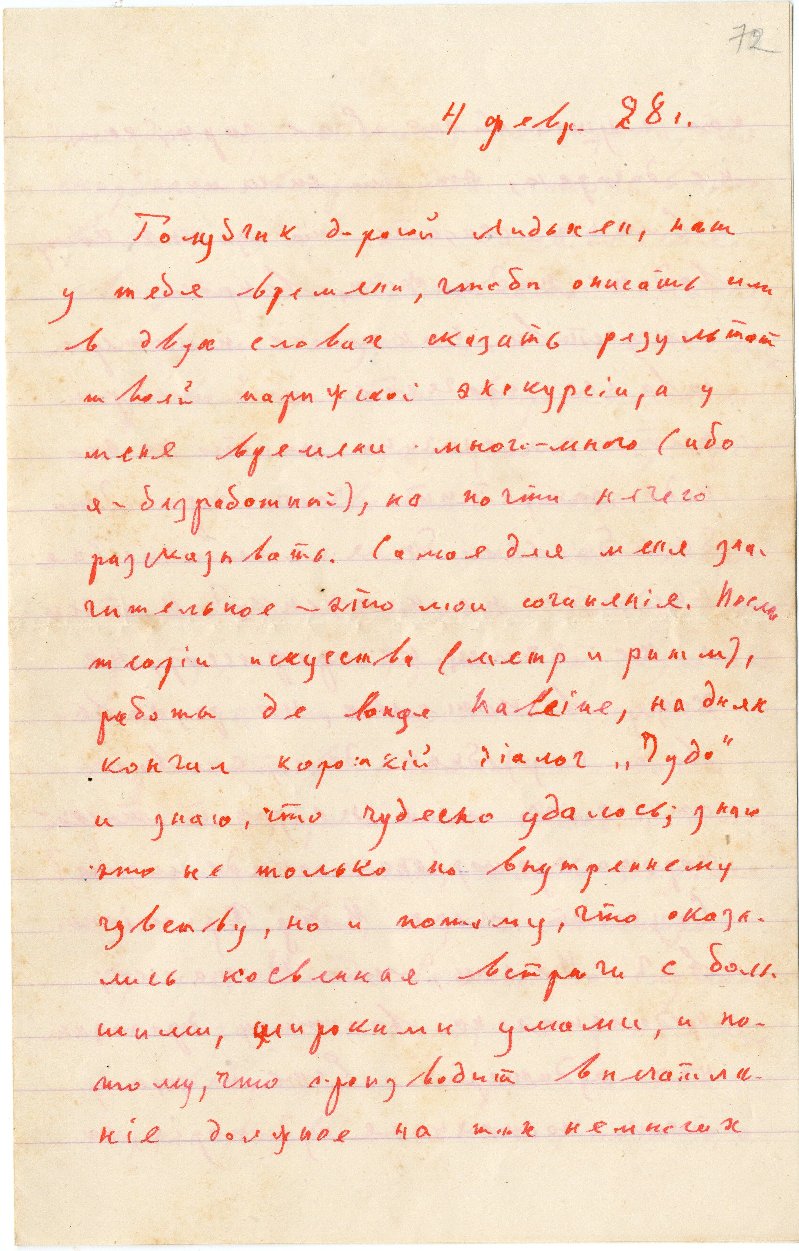 72
4 февр. 28 г.
Голубчик дорогой Лидикен, нет
у тебя времени, чтобы описать или
в двух словах сказать результат
твоей парижской экскурсіи, а у
меня времени много-много (ибо
я – безработный), но почти нечего
разсказывать. Самое для меня зна-
чительное – это мои сочиненія. После
теоріи искусства (метр и ритм),
работы де, на днях
кончил короткій діалог „Чудо"
и знаю, что чудесно удалось; знаю
это не только по внутреннему
чувству, но и потому, что оказа-
лись косвенная встречи с боль-
шими, широкими умами, и по-
тому, что производит впечатле-
ніе должное на тех немногих